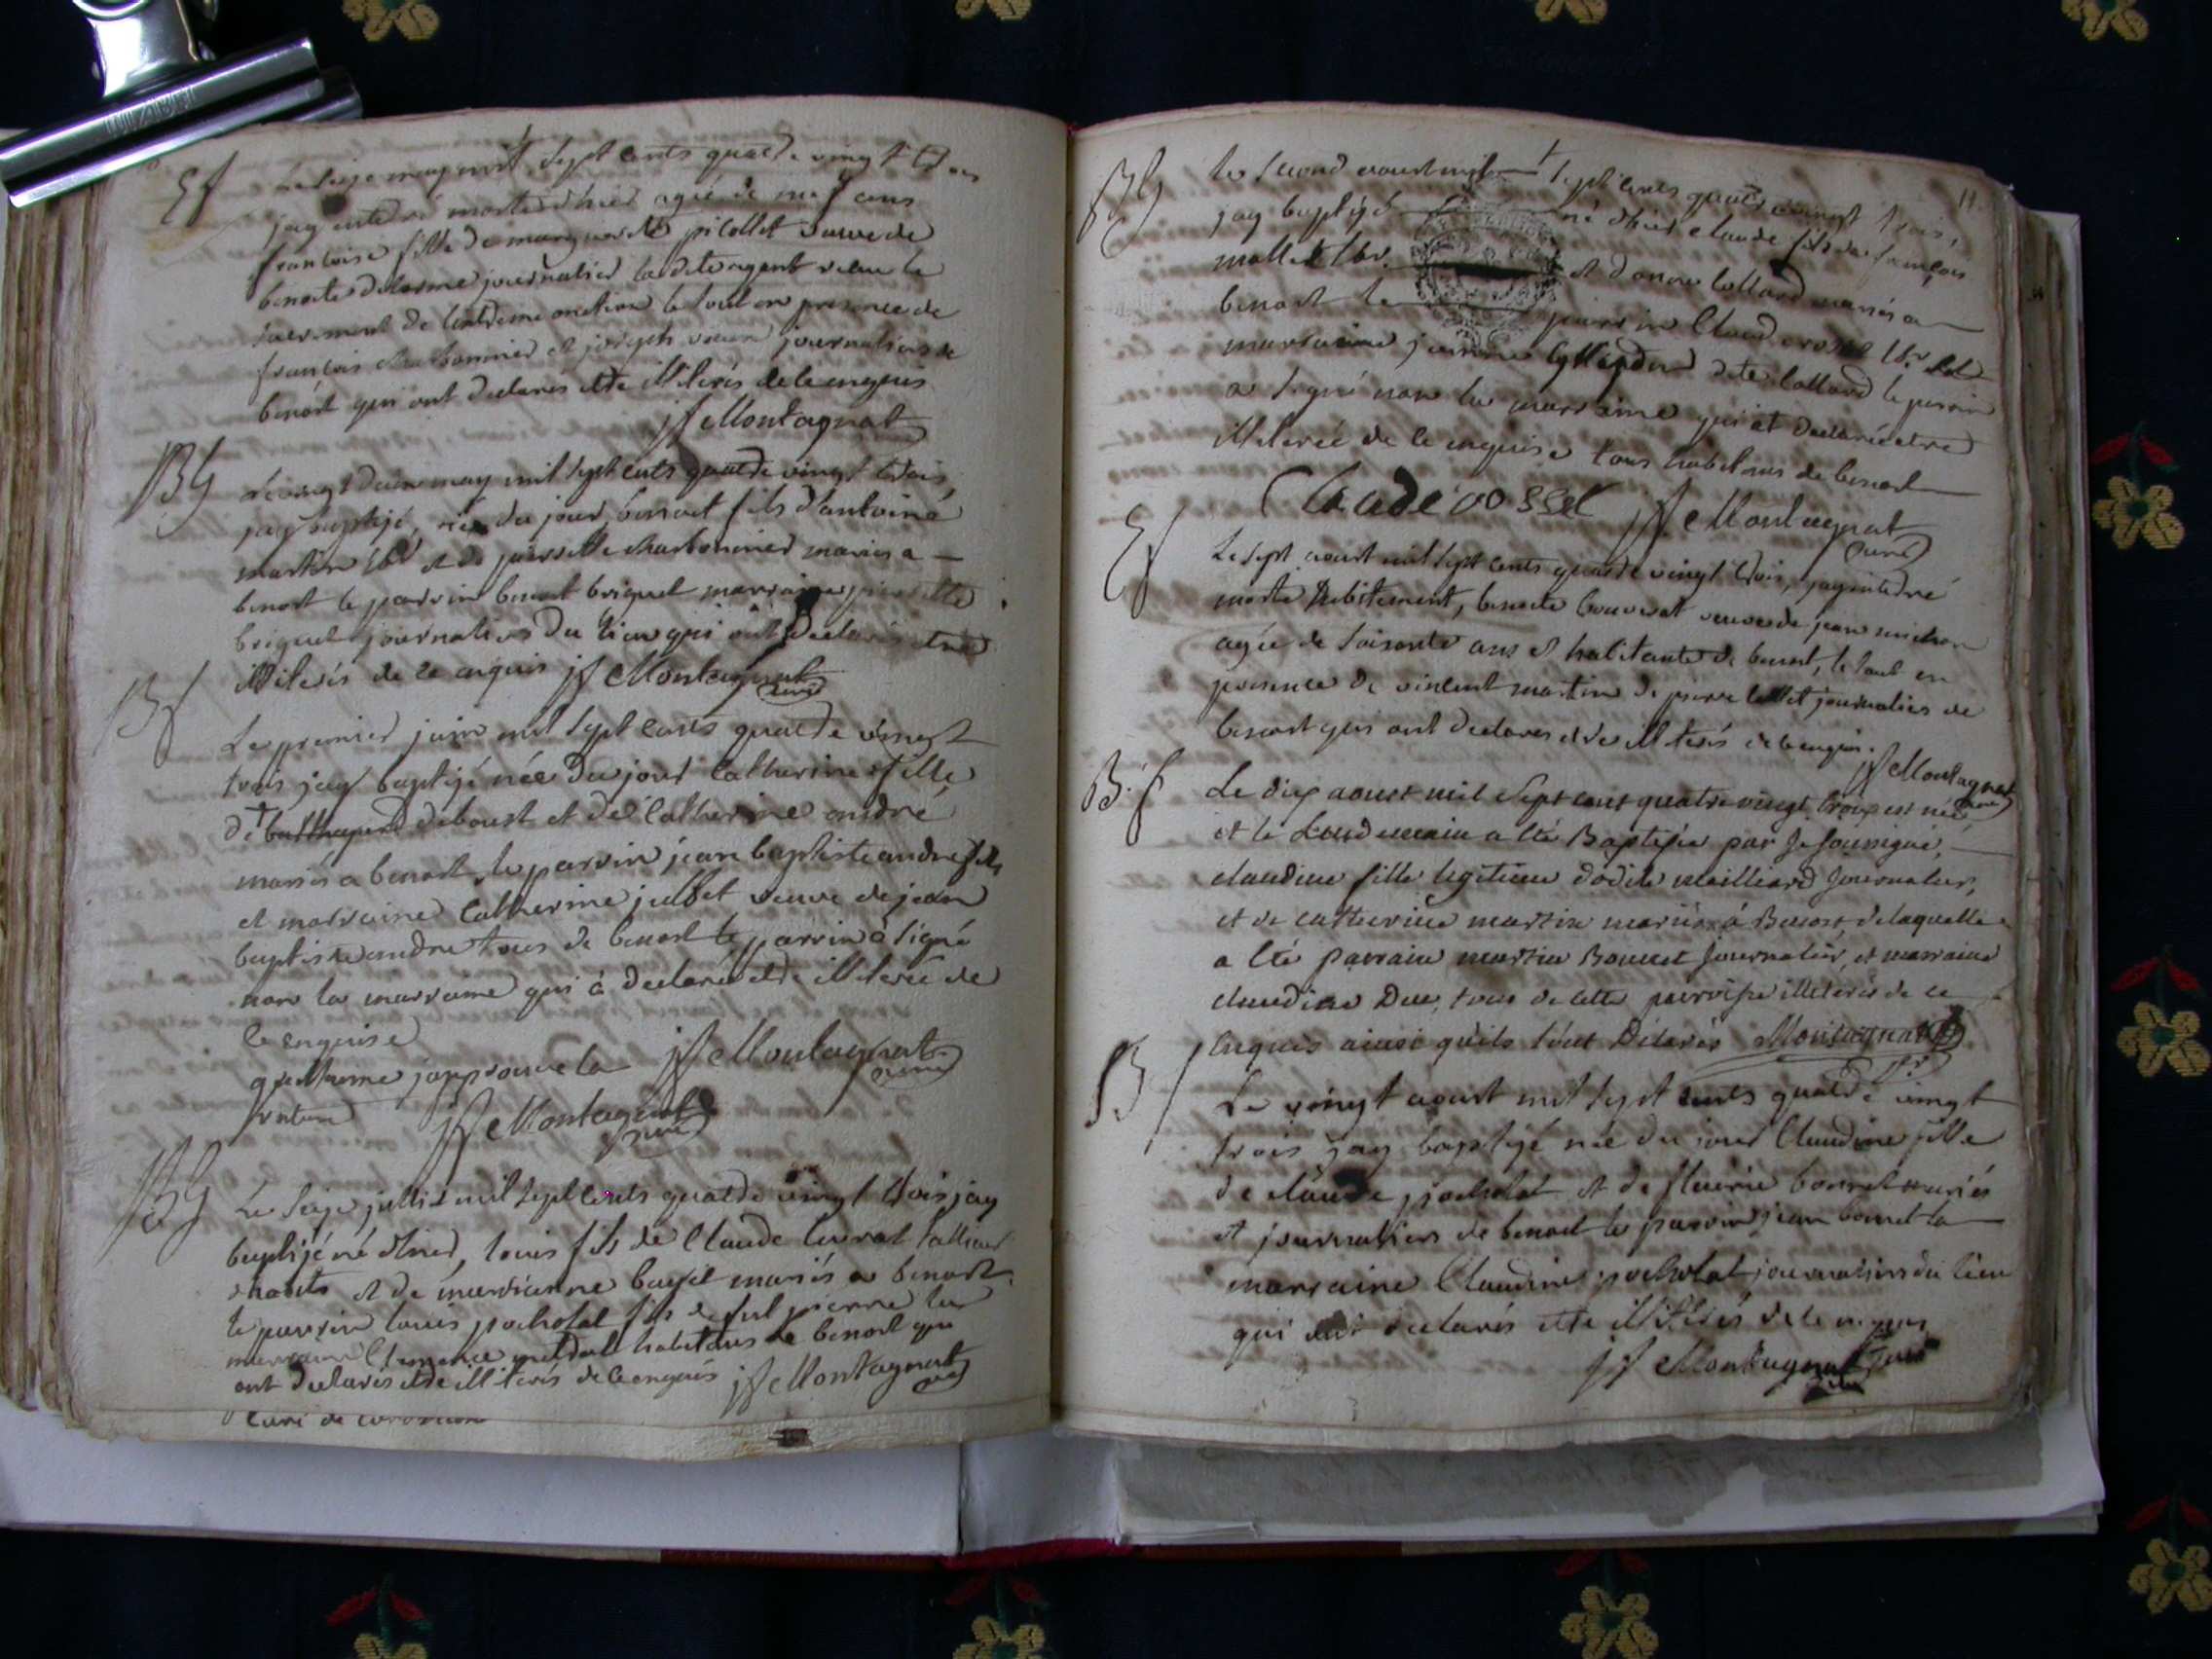 Ef
Le seize may mil sept cents quatre vingt trois
jay enterré morte d'hier agée de neuf ans
francoise fille de marguerite picollet veuve de
benoit delorme journalier la dite ayant recue le
sacrement de lextreme onction le tout en presence de
francois charbonnier et joseph journaliers de
benost qui ont declarés etre illiterés de ce enquis
jf Montagnat
BG
Le vingt deux may mil sept cents quatre vingt trois,
jay baptisé, née du jour, benoit fils d'antoine
martin lbr et de pierrette charbonnier mariés a
benost le parrin benoit briquet marraine pierrette
briquet journaliers du lieu qui ont declarés etre
illiterés de ce enquis jf Montagnat
curé
Bf
Le premier juin mil sept cents quatre vingt
trois jay baptisé née du jour Catherine fille
de deboust et de Catherine andré
mariés a benost le parrin jean baptiste andre fils
et marraine Catherine jullet veuve de jean
baptiste andre tous de benost le parrin à signé
non la marraine qui à declaré etre illiterée de
ce enquise
guillaume japprouve la jf Montagnat
curé
rature jf Montagnat
curé
BG
Le seize jullet mil sept cents quatre vingt trois jay
baptisé né d'hier, louis fils de Claude tallieur
d'habits et de marianne mariés a benost
le parrin louis pocholat fils de fut pierre la
marraine Clemence habitans de benost qui
ont declarés etre illiterés de ce enquis jf Montagnat
curé
curé de
11
BG
Le second aoust mil sept cents quatre vingt trois,
jay baptisé né d'hier Claude fils de francois
mollet lbr. et d'anne collard mariés a
benost le parrin Claude rossel lbr et
marraine jeanne dite collard le parrin
a signé non la marraine qui at declarée etre
illiterée de ce enquise tous habitans de benost
Claude rossel jf Montagnat
curé
Ef
Le sept aoust mil sept cents quatre vingt trois, jay enterré
morte subitement, benoite bouverat veuve de jean michon
agée de soisante ans et habitante de benost, le tout en
presence de vincent martin de pierre collet journaliers de
benost qui ont declares etre illiterés de ce enquis.
jf Montagnat
curé
B.f
Le dix aoust mil sept cent quatre vingt trois est née
et le Lendemain a été Baptisée par Je soussigné,
claudine fille legitime d'odile mailliard Journalier,
et de catherine martin mariés á Benost, de laquelle
a été parrain martin Bonnet Journalier, et marraine
claudine Due, tous de cette parroisse illiterés de ce
Enquis ainsi qu'ils l'ont Déclarés Montagnat
Bf
Le vingt aoust mil sept cents quatre vingt
trois jay baptisé née du jour Claudine fille
de claude pocholat et de fleurie bonnet mariés
et journaliers de benost le parrin jean bonnet la
marraine Claudine pocholat journaliers du lieu
qui ont declarés etre illiterés de ce enquis
jf Montagnat curé